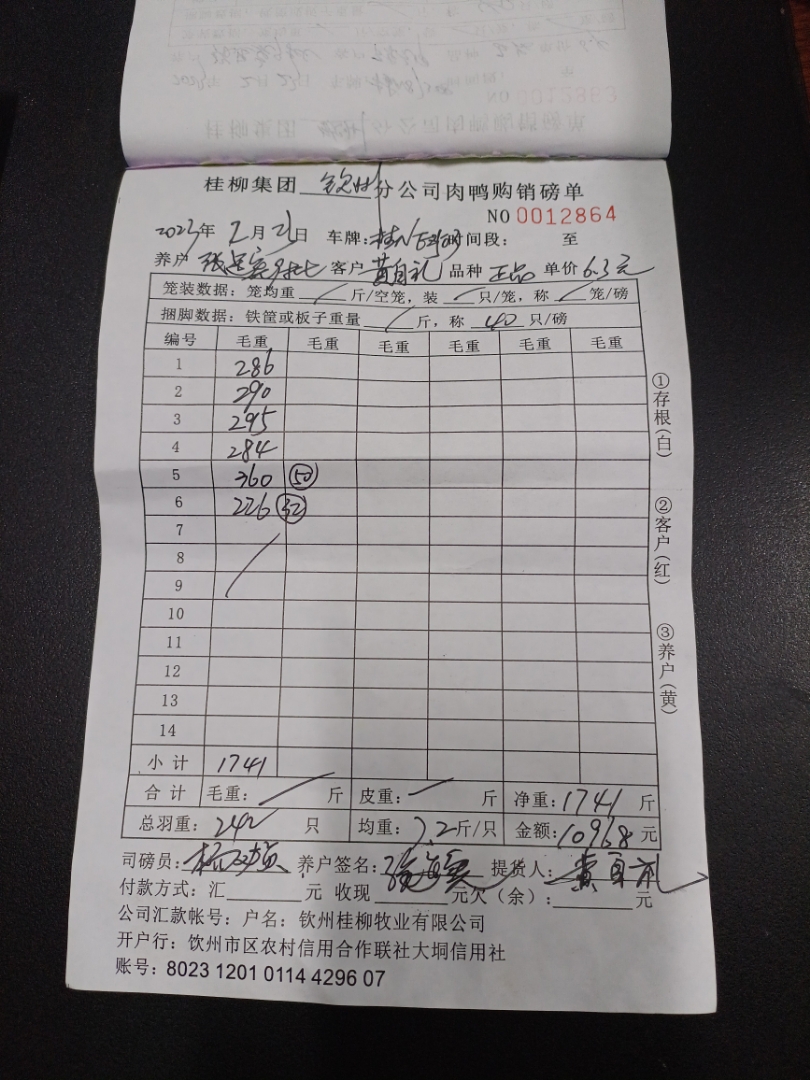 NO 0012863
桂柳集团 钦州 分公司肉鸭购销磅单
NO 0012864
2023年 2月 23日 车牌: 时间段: 至
养户 客户 黄自礼 品种 正品 单价 6.3元
笼装数据: 笼均重 / 斤/空笼, 装 / 只/笼, 称 / 笼/磅
捆脚数据: 铁筐或板子重量 / 斤, 称 40 只/磅
编号 毛重 毛重 毛重 毛重 毛重 毛重
1 286
2 290
3 295
4 284
5 360 50
6 226 32
7
8
9
10
11
12
13
14
小计 1741
合计 毛重: / 斤 皮重: / 斤 净重: 1741 斤
总羽重: 242 只 均重: 7.2斤/只 金额: 10968 元
司磅员: 养户签名: 提货人: 黄自礼
付款方式: 汇 元 收现 元欠(余): 元
公司汇款帐号: 户名: 钦州桂柳牧业有限公司
开户行: 钦州市区农村信用合作联社大垌信用社
账号: 8023 1201 0114 4296 07
①存根(白)
②客户(红)
③养户(黄)